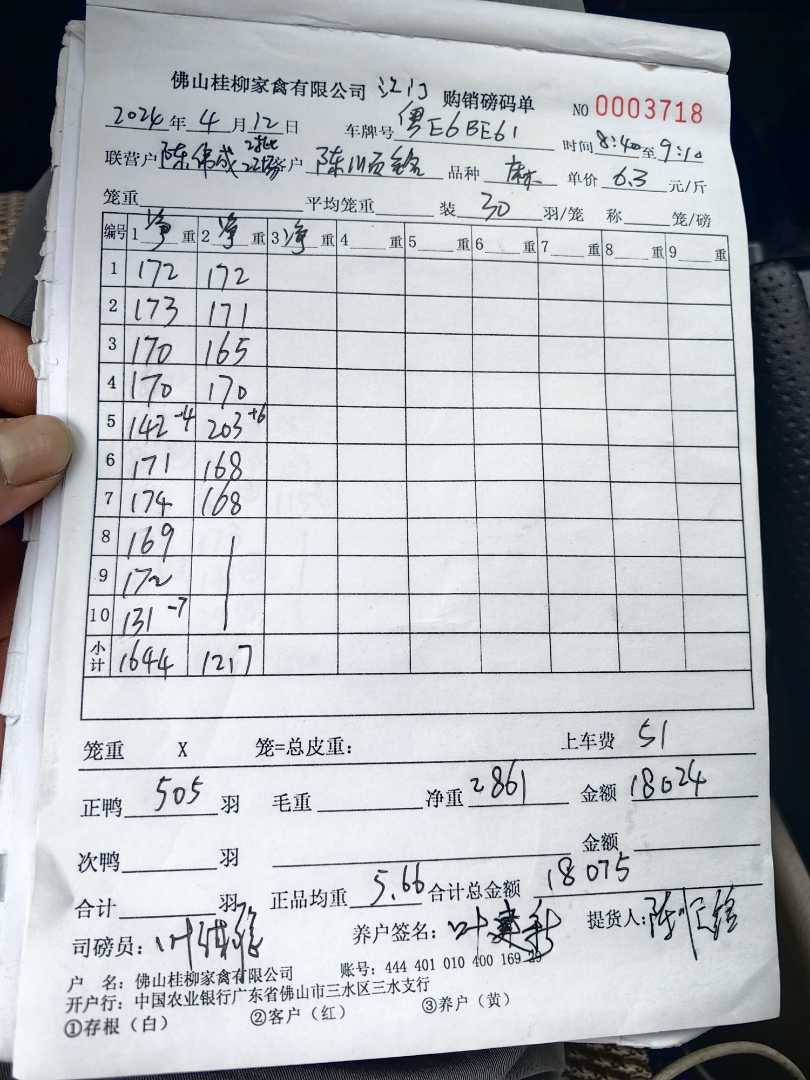 佛山桂柳家禽有限公司 江门 购销磅码单 NO 0003718
2024年4月12日 车牌号 粤E6BE61 时间8:40至9:10
联营户 陈伟成 客户 陈顺铭 品种 麻 单价 6.3 元/斤
笼重 平均笼重 装 30 羽/笼 称 笼/磅
编号 1 净 重 2 净 重 3 净 重 4 重 5 重 6 重 7 重 8 重 9 重
1 172 172
2 173 171
3 170 165
4 170 170
5 142 -4 203 +6
6 171 168
7 174 168
8 169
9 172
10 131 -7
小计 1644 1217
笼重 X 笼=总皮重: 上车费 51
正鸭 505 羽 毛重 净重 2861 金额 18024
次鸭 羽 金额
合计 羽 正品均重 5.66 合计总金额 18075
司磅员: 养户签名: 提货人: 陈顺铭
户 名: 佛山桂柳家禽有限公司 账号: 444 401 010 400 169 29
开户行: 中国农业银行广东省佛山市三水区三水支行
①存根(白) ②客户(红) ③养户(黄)